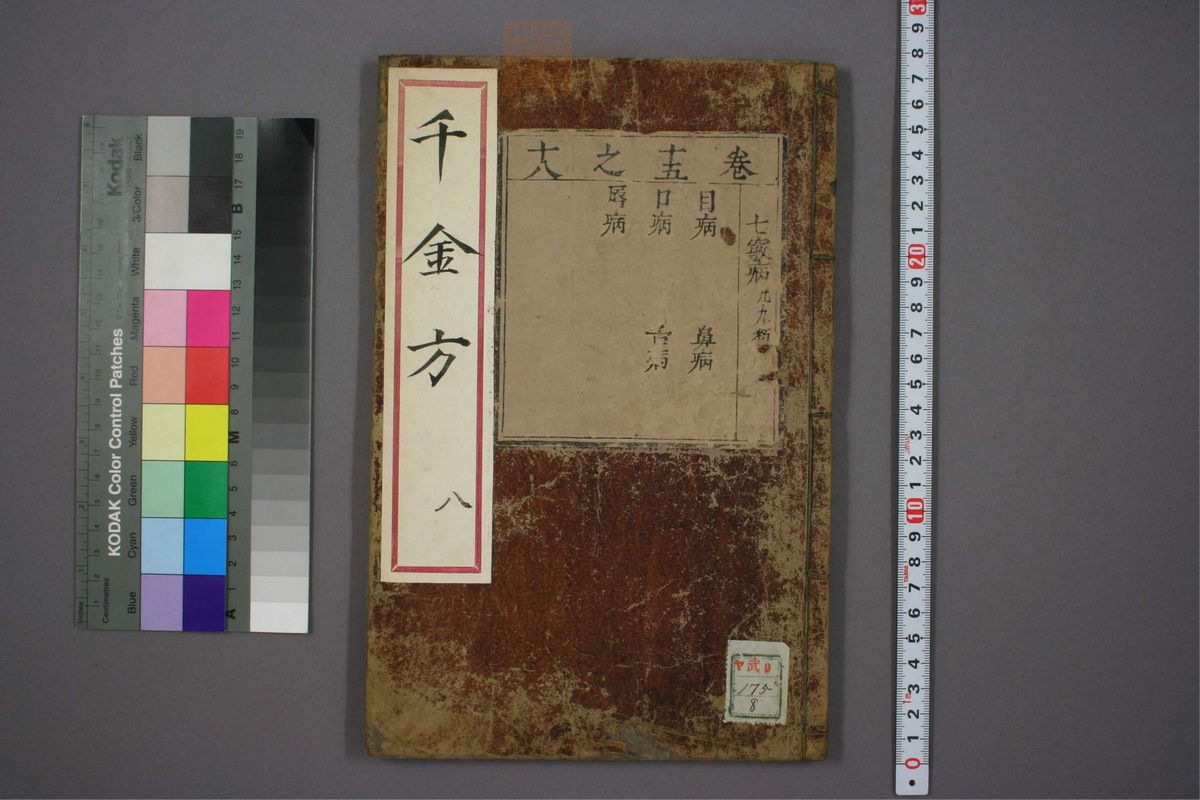 千金方
八
卷 十五 之 十八
七竅病
目病 鼻病
口病 舌病
脣病
175
8
KODAK Color Control Patches
Kodak
Black
3/Color
White
Magenta
Red
Yellow
Green
Cyan
Blue
Inches
Centimetres
B
M
A
1 2 3 4 5 6 7 8 9 10 11 12 13 14 15 17 18 19
0 1 2 3 4 5 6 7 8 9 10 1 2 3 4 5 6 7 8 9 20 1 2 3 4 5 6 7 8 9